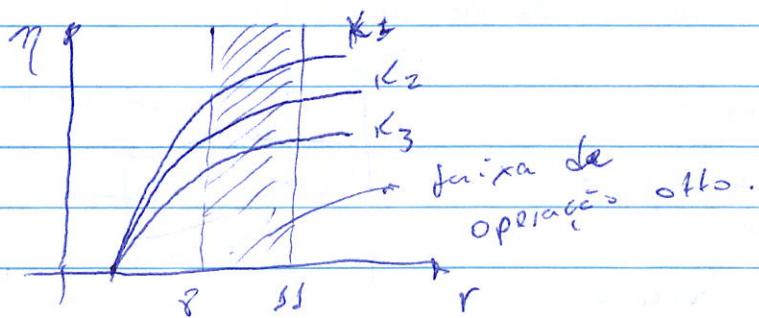 η
K1
K2
K3
faixa de
operação otto.
8
11
r